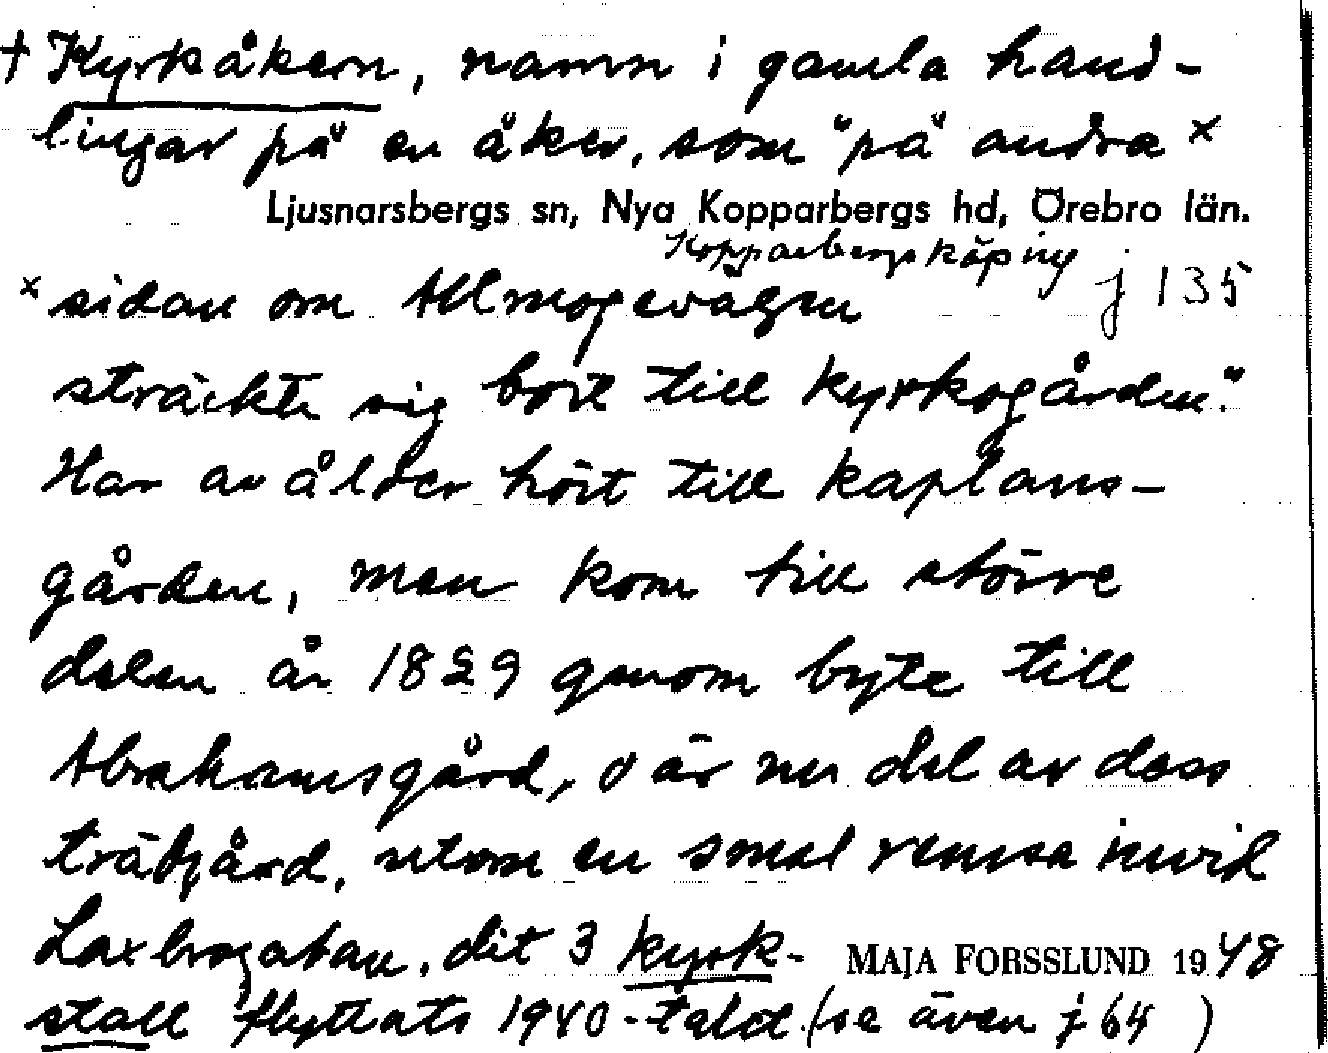 † Kyrkåkern, namn i gamla hand-
lingar på en åker, som "på andra x
Ljusnarsbergs sn, Nya Kopparbergs hd, Örebro län.
Kopparbergs köping
j 135
x sidan om Allmogevägen
sträckte sig bort till kyrkogården."
Har av ålder hört till kaplans-
gården, men kom till större
delen år 1829 genom byte till
Abrahamsgård, o är nu del av dess
trädgård, utom en smal remsa invid
Laxbrogatan, dit 3 kyrk-
MAJA FORSSLUND 1948
stall flyttats 1940-talet (se även j 64 )